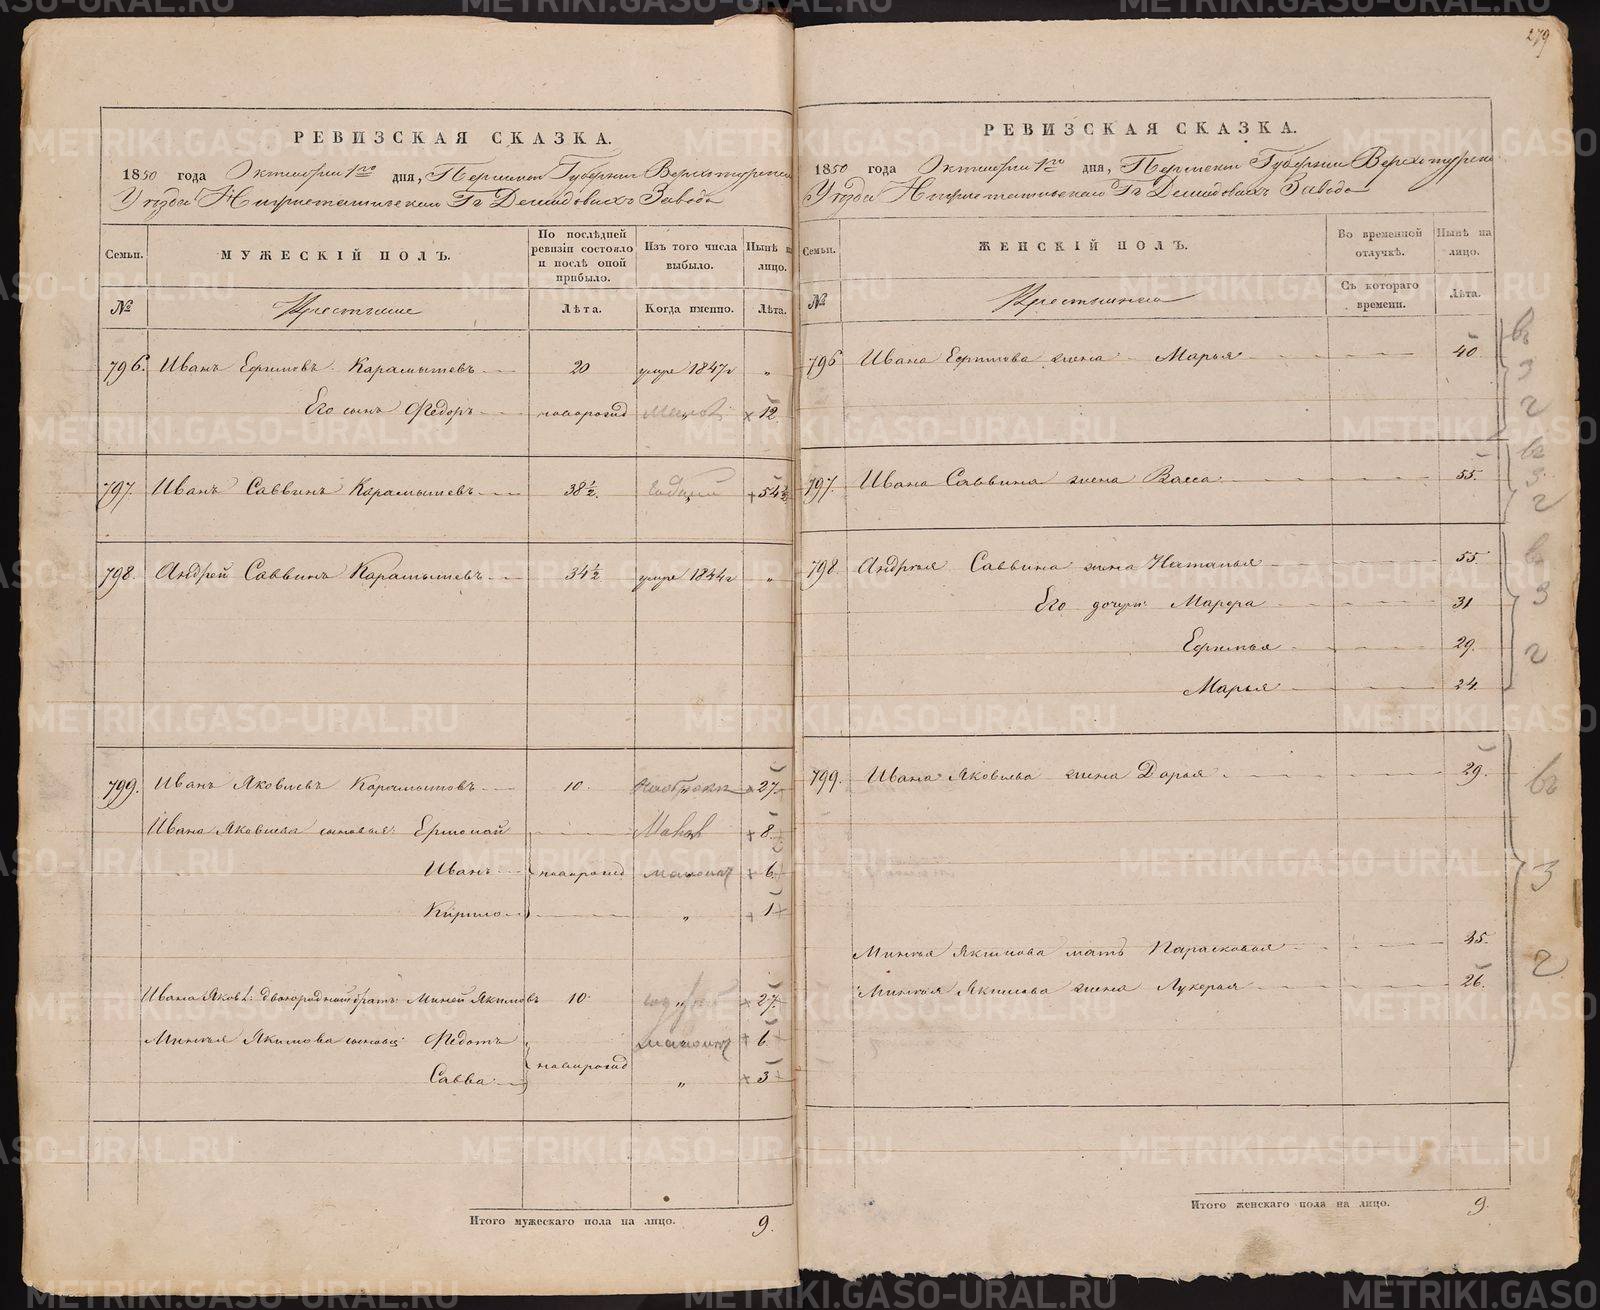 279
РЕВИЗСКАЯ СКАЗКА.
1850 года Октября 1го дня, Пермской Губернии Верхотурскаго
Уезда Нижнетагильскаго Гг Демидовыхъ Завода
Семьи.
МУЖЕСКІЙ ПОЛЪ.
По послѣдней ревизіи состояло и послѣ оной прибыло.
Изъ того числа выбыло.
Нынѣ на лицо.
№
Крестьяне
Лѣта.
Когда именно.
Лѣта.
796. Иванъ Ефимовъ Карамышевъ 20 умре 1847г „
Его сынъ Федоръ новорожд 12
797. Иванъ Саввинъ Карамышевъ 38½ 54½
798. Андрей Саввинъ Карамышевъ 34½ умре 1844г „
799. Иванъ Яковлевъ Карамышевъ 10. 27.
Ивана Яковлева сыновья: Ермолай 8.
Иванъ новорожд 6.
Кирило „ 1
Ивана Яковл: двоюродный братъ Миней Якимовъ 10. 27
Минѣя Якимова сыновья: Федотъ 6
Савва новорожд „ 3
Итого мужескаго пола на лицо. 9.
РЕВИЗСКАЯ СКАЗКА.
1850 года Октября 1го дня, Пермской Губернии Верхотурскаго
Уезда Нижнетагильскаго Гг Демидовыхъ Завода
Семьи.
ЖЕНСКІЙ ПОЛЪ.
Во временной отлучкѣ.
Нынѣ на лицо.
№
Крестьянки
Съ котораго времени.
Лѣта.
796 Ивана Ефимова жена Марья 40.
797. Ивана Саввина жена Васса 55.
798 Андрея Саввина жена Наталья 55.
Его дочери: Марфа 31
Ефимья 29.
Марья 24.
799. Ивана Яковлева жена Дарья 29.
Минѣя Якимова мать Парасковья 45.
Минѣя Якимова жена Лукерья 26.
Итого женскаго пола на лицо. 9.
METRIKI.GASO-URAL.RU